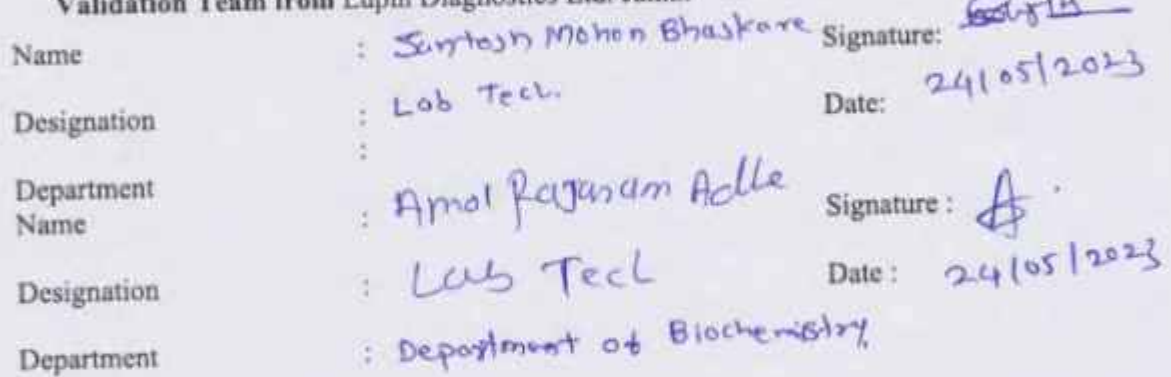 Validation Team from Lupin Diagnostics Ltd.
Name : Santosh Mohan Bhaskare Signature:
Designation : Lab Tech. Date: 24/05/2023
:
Department
Name : Amol Rajaram Adle Signature :
Designation : Lab Tech Date : 24/05/2023
Department : Department of Biochemistry